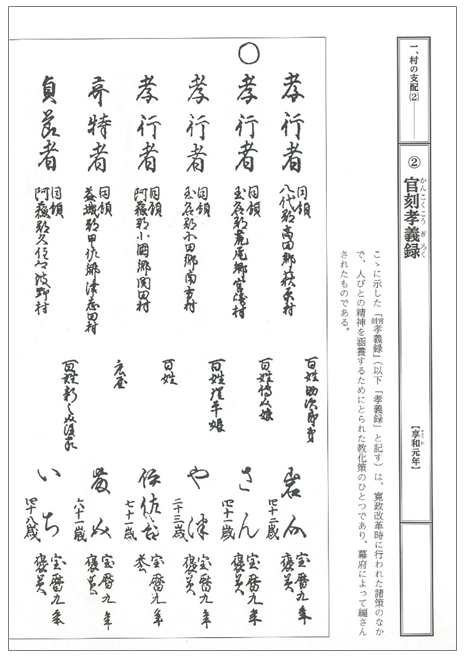 一、村の支配⑵
② 官刻孝義録
かんこくこうぎろく
【享和元年】
きょうわ
こゝに示した『官刻孝義録』(以下『孝義録』と記す)は、寛政改革時に行われた諸策のなか
で、人びとの精神を涵養するためにとられた教化策のひとつであり、幕府によって編さん
されたものである。
孝行者 同領 八代郡高田郷萩原村 百姓 四十二歳 宝暦九年 褒美
○孝行者 同領 玉名郡荒尾郷宮崎村 百姓 娘 さん 四十一歳 宝暦九年 褒美
孝行者 同領 玉名郡小田郷 村 百姓 平娘 やま 二十三歳 宝暦九年 褒美
孝行者 同領 阿蘇郡小国郷関田村 百姓 七十一歳 宝暦九年
奇特者 同領 益城郡甲佐郷津志田村 庄屋 六十一歳 宝暦九年 褒美
貞節者 同領 阿蘇郡久住 野村 百姓 いち 四十八歳 宝暦九年 褒美